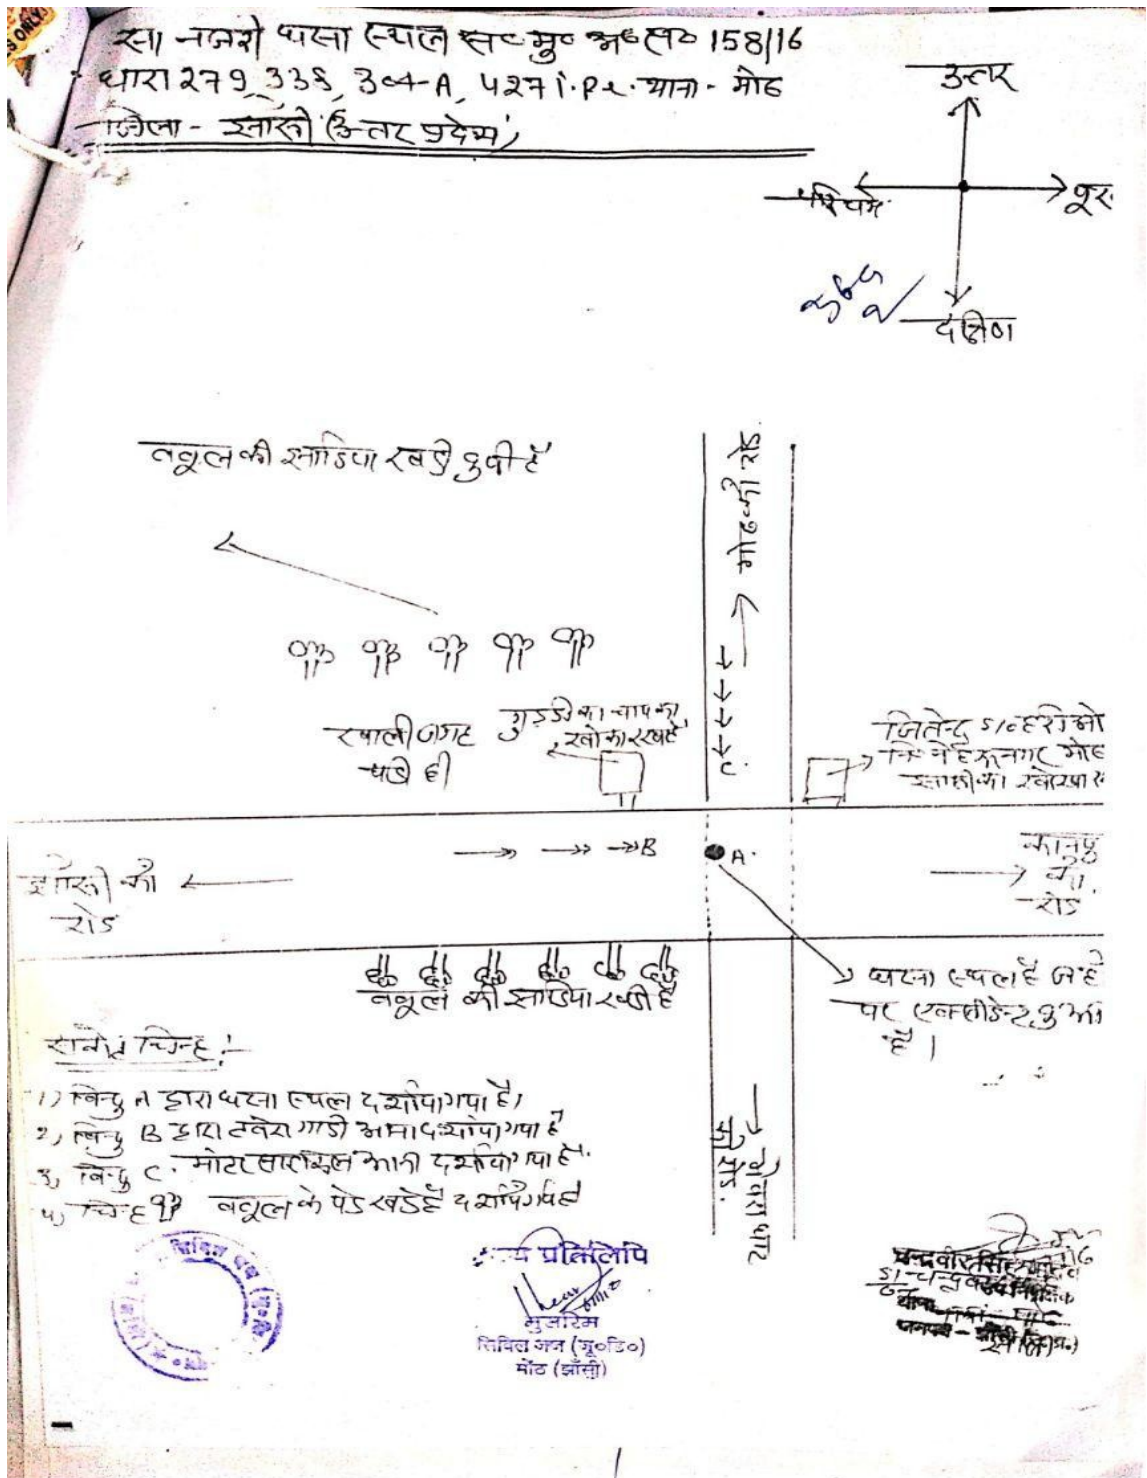 नजरी घटना स्थल स० मु० अ० स० 158/16
धारा 279, 338, 304-A, 427 i.P.c. थाना - मोठ
जिला - झाँसी (उत्तर प्रदेश)
उत्तर
पश्चिम
दक्षिण
बबूल की झाडिया खडी हुयी है
मोठ को रोड
खाली जगह
पडी है
गुड्डी का चाय का
खोका रखा है
C.
जितेन्द्र S/o हरीओ
नेहरूनगर मोठ
B
A.
झाँसी को
रोड
कानपु
को
रोड
बबूल की झाडिया खडी है
घटना स्थल है जहाँ
पर एक्सीडेन्ट हुआ
है।
संकेत चिन्ह :-
1) बिन्दु A द्वारा घटना स्थल दर्शाया गया है।
2) बिन्दु B द्वारा टवेरा गाडी आना दर्शाया गया है
3) बिन्दु C. मोटर साईकिल आती दर्शाया गया है.
4) चिन्ह बबूल के पेड खडे है दर्शाये गये है
घाट
को रोड.
प्रतिलिपि
मुंसरिम
सिविल जज (जू०डि०)
मोंठ (झाँसी)